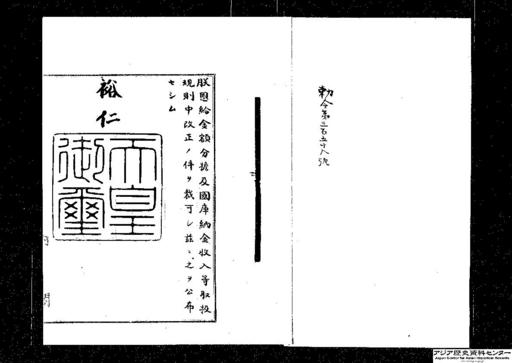 勅令第三百五十八號
朕恩給金額分擔及國庫納金收入等取扱
規則中改正ノ件ヲ裁可シ茲ニ之ヲ公布
セシム
裕仁
天皇
御璽
アジア歴史資料センター
Japan Center for Asian Historical Records